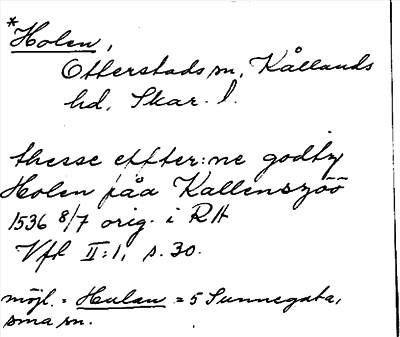 *Holen,
Otterstads sn, Kållands
hd, Skar. l.
thesse effter:ne godtz
Holen påa Kallenszöö
1536 8/7 orig. i RA
Vfl II:1, s. 30.
möjl. = Hulan = 5 Sunnegata,
sma sn.